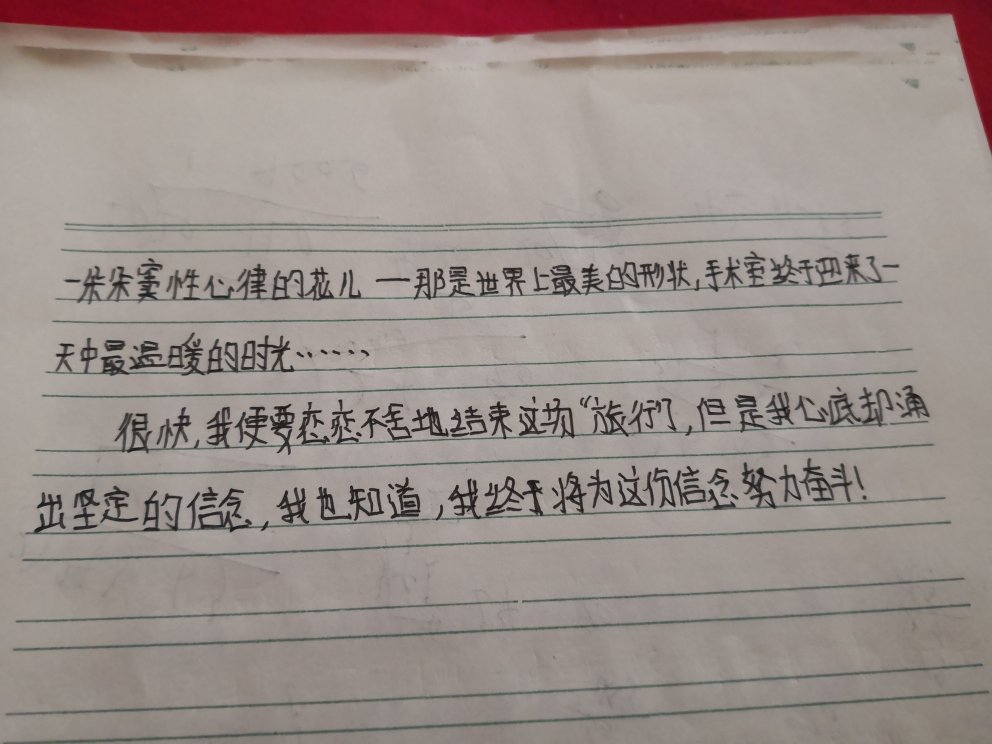 一朵朵窦性心律的花儿——那是世界上最美的形状,手术室终于迎来了一
天中最温暖的时光……
很快,我便要恋恋不舍地结束这场“旅行”了,但是我心底却涌
出坚定的信念,我也知道,我终于将为这份信念努力奋斗!